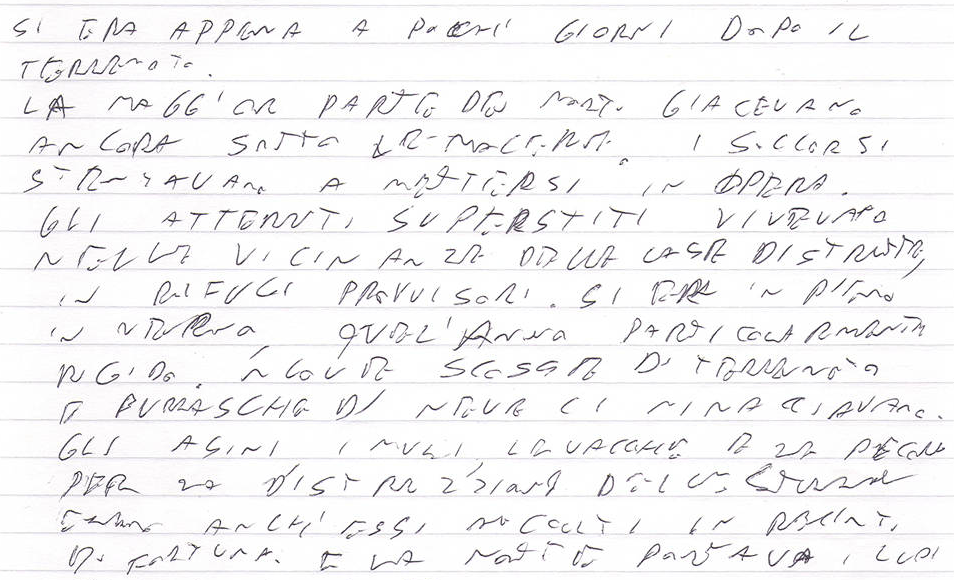 SI ERA APPENA A POCHI GIORNI DOPO IL
TERREMOTO.
LA MAGGIOR PARTE DEI MORTI GIACEVANO
ANCORA SOTTO LE MACERIE. I SOCCORSI
STENTAVANO A METTERSI IN OPERA.
GLI ATTERRITI SUPERSTITI VIVEVANO
NELLE VICINANZE DELLE CASE DISTRUTTE,
IN RIFUGI PROVVISORI. SI ERA IN PIENO
INVERNO, QUELL'ANNO PARTICOLARMENTE
RIGIDO. NUOVE SCOSSE DI TERREMOTO
E BURRASCHE DI NEVE CI MINACCIAVANO.
GLI ASINI I MULI, LE VACCHE E LE PECORE
PER LA DISTRUZIONE DELLE STALLE
ERANO ANCH'ESSI ACCOLTI IN RECINTI
DI FORTUNA. E LA NOTTE PORTAVA I LUPI